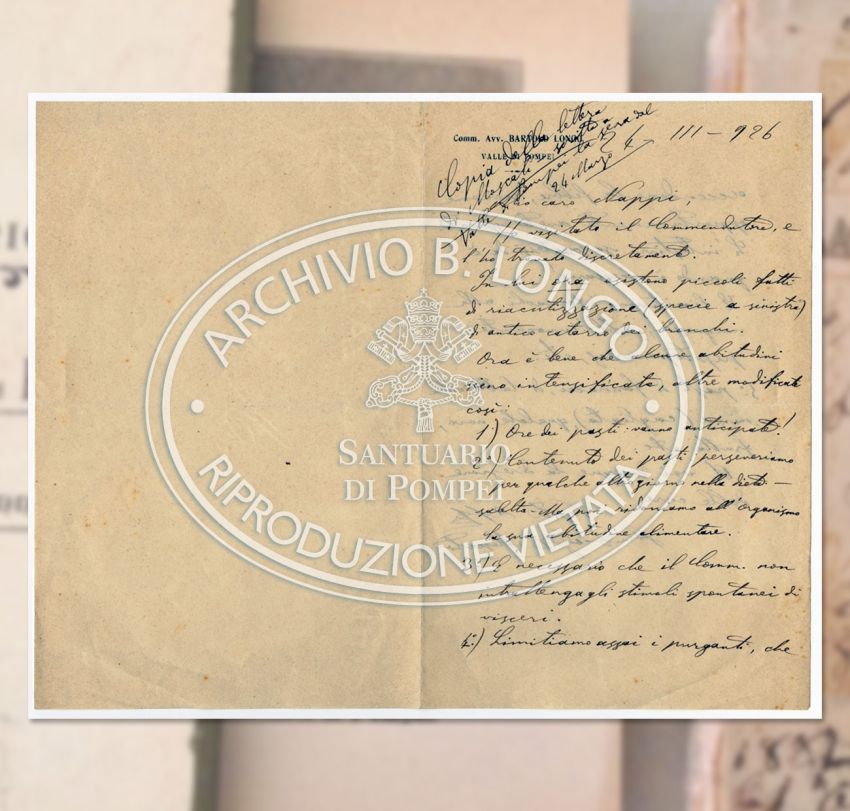 Comm. Avv. BARTOLO LONGO
VALLE DI POMPEI
Copia della lettera
di Moscati scritta a
Valle di Pompei la sera del
24 Marzo
24 III - 926
Mio caro Nappi,
Ho visitato il Commendatore, e
l'ho trovato discretamente.
In lui ora esistono piccoli fatti
di riacutizzazione (specie a sinistra)
d'antico catarro dei bronchi.
Ora è bene che alcune abitudini
sieno intensificate, altre modificate
così:
1º) Ore dei pasti: vanno anticipate!
2º) Contenuto dei pasti: perseveriamo
per qualche altro giorno nella dieta
scelta. Ma poi ridoniamo all'organismo
la sua abitudine alimentare.
3º) È necessario che il Comm. non
intrattenga gli stimoli spontanei di
visceri.
4º) Limitiamo assai i purganti, che
ARCHIVIO B. LONGO
SANTUARIO
DI POMPEI
RIPRODUZIONE VIETATA
1882